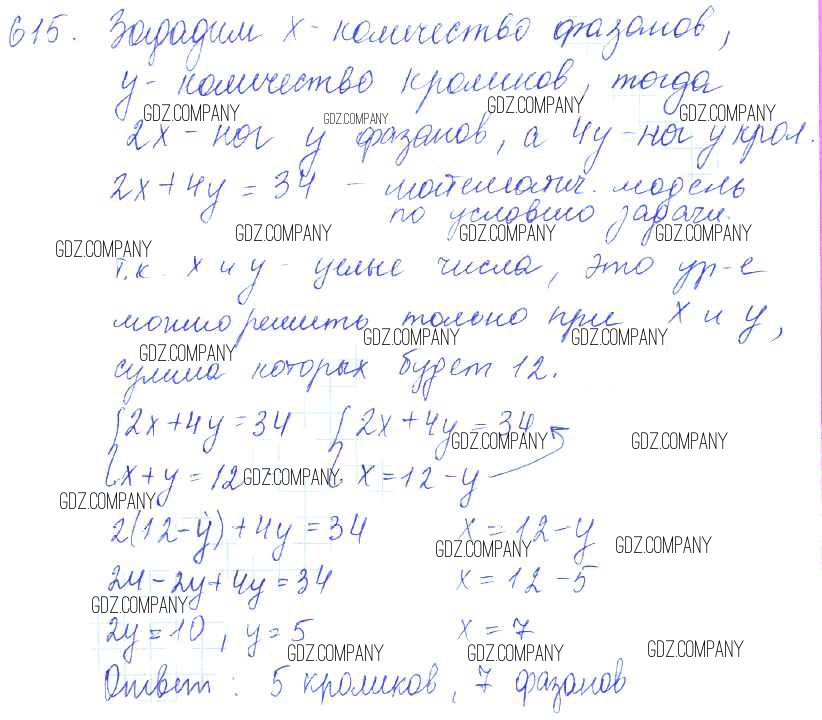 615. Зададим x - количество фазанов,
y - количество кроликов, тогда
GDZ.COMPANY GDZ.COMPANY GDZ.COMPANY GDZ.COMPANY
2x - ног у фазанов, а 4y - ног у крол.
2x + 4y = 34 - математич. модель
по условию задачи.
GDZ.COMPANY GDZ.COMPANY GDZ.COMPANY GDZ.COMPANY
Т.к. x и y - целые числа, это ур-е
можно решить только при x и y,
GDZ.COMPANY GDZ.COMPANY GDZ.COMPANY
сумма которых будет 12.
{2x + 4y = 34 {2x + 4y = 34
GDZ.COMPANY GDZ.COMPANY
{x + y = 12 {x = 12 - y
GDZ.COMPANY GDZ.COMPANY
2(12 - y) + 4y = 34 x = 12 - y
GDZ.COMPANY GDZ.COMPANY
24 - 2y + 4y = 34 x = 12 - 5
GDZ.COMPANY
2y = 10, y = 5 x = 7
GDZ.COMPANY GDZ.COMPANY GDZ.COMPANY
Ответ: 5 кроликов, 7 фазанов